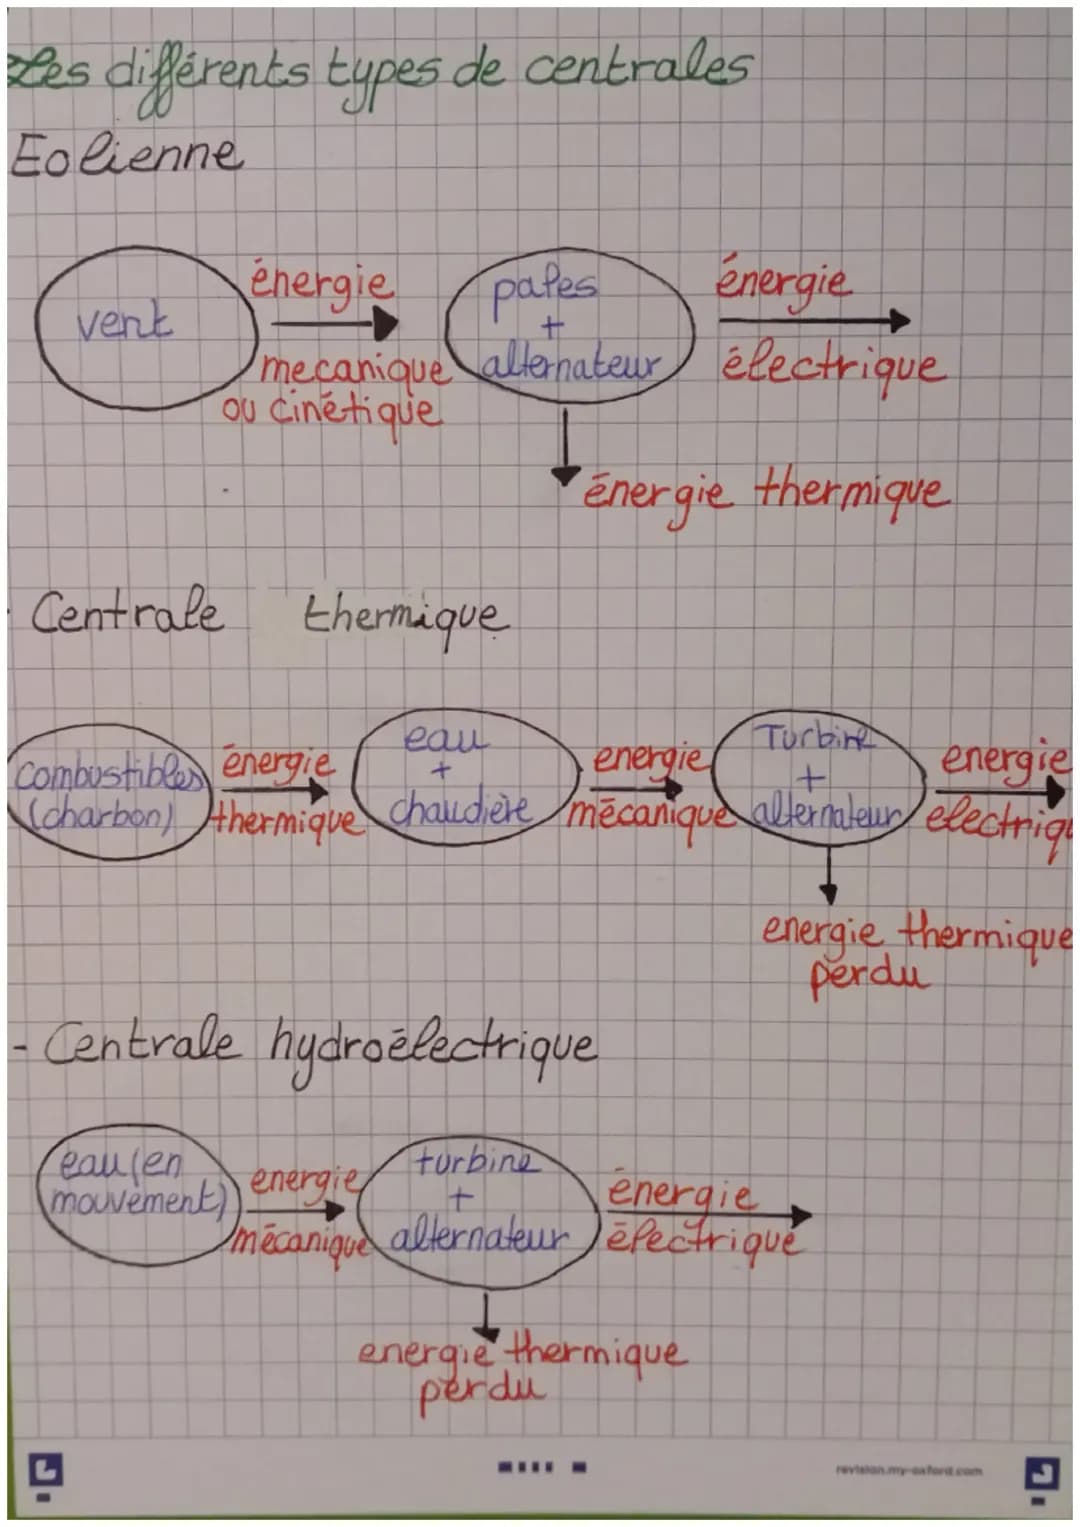 Les différents types de centrales
Eolienne
vent
énergie
mecanique
ou cinétique
pales
+
alternateur
énergie
électrique
énergie thermique
- Centrale thermique
combustibles
(charbon)
énergie
thermique
eau
+
chaudière
energie
mécanique
Turbine
+
alternateur
energie
electriqu
energie thermique
perdu
- Centrale hydroélectrique
eau (en
mouvement)
energie
mécanique
turbine
+
alternateur
énergie
électrique
energie thermique
perdu
revision.my-oxford.com